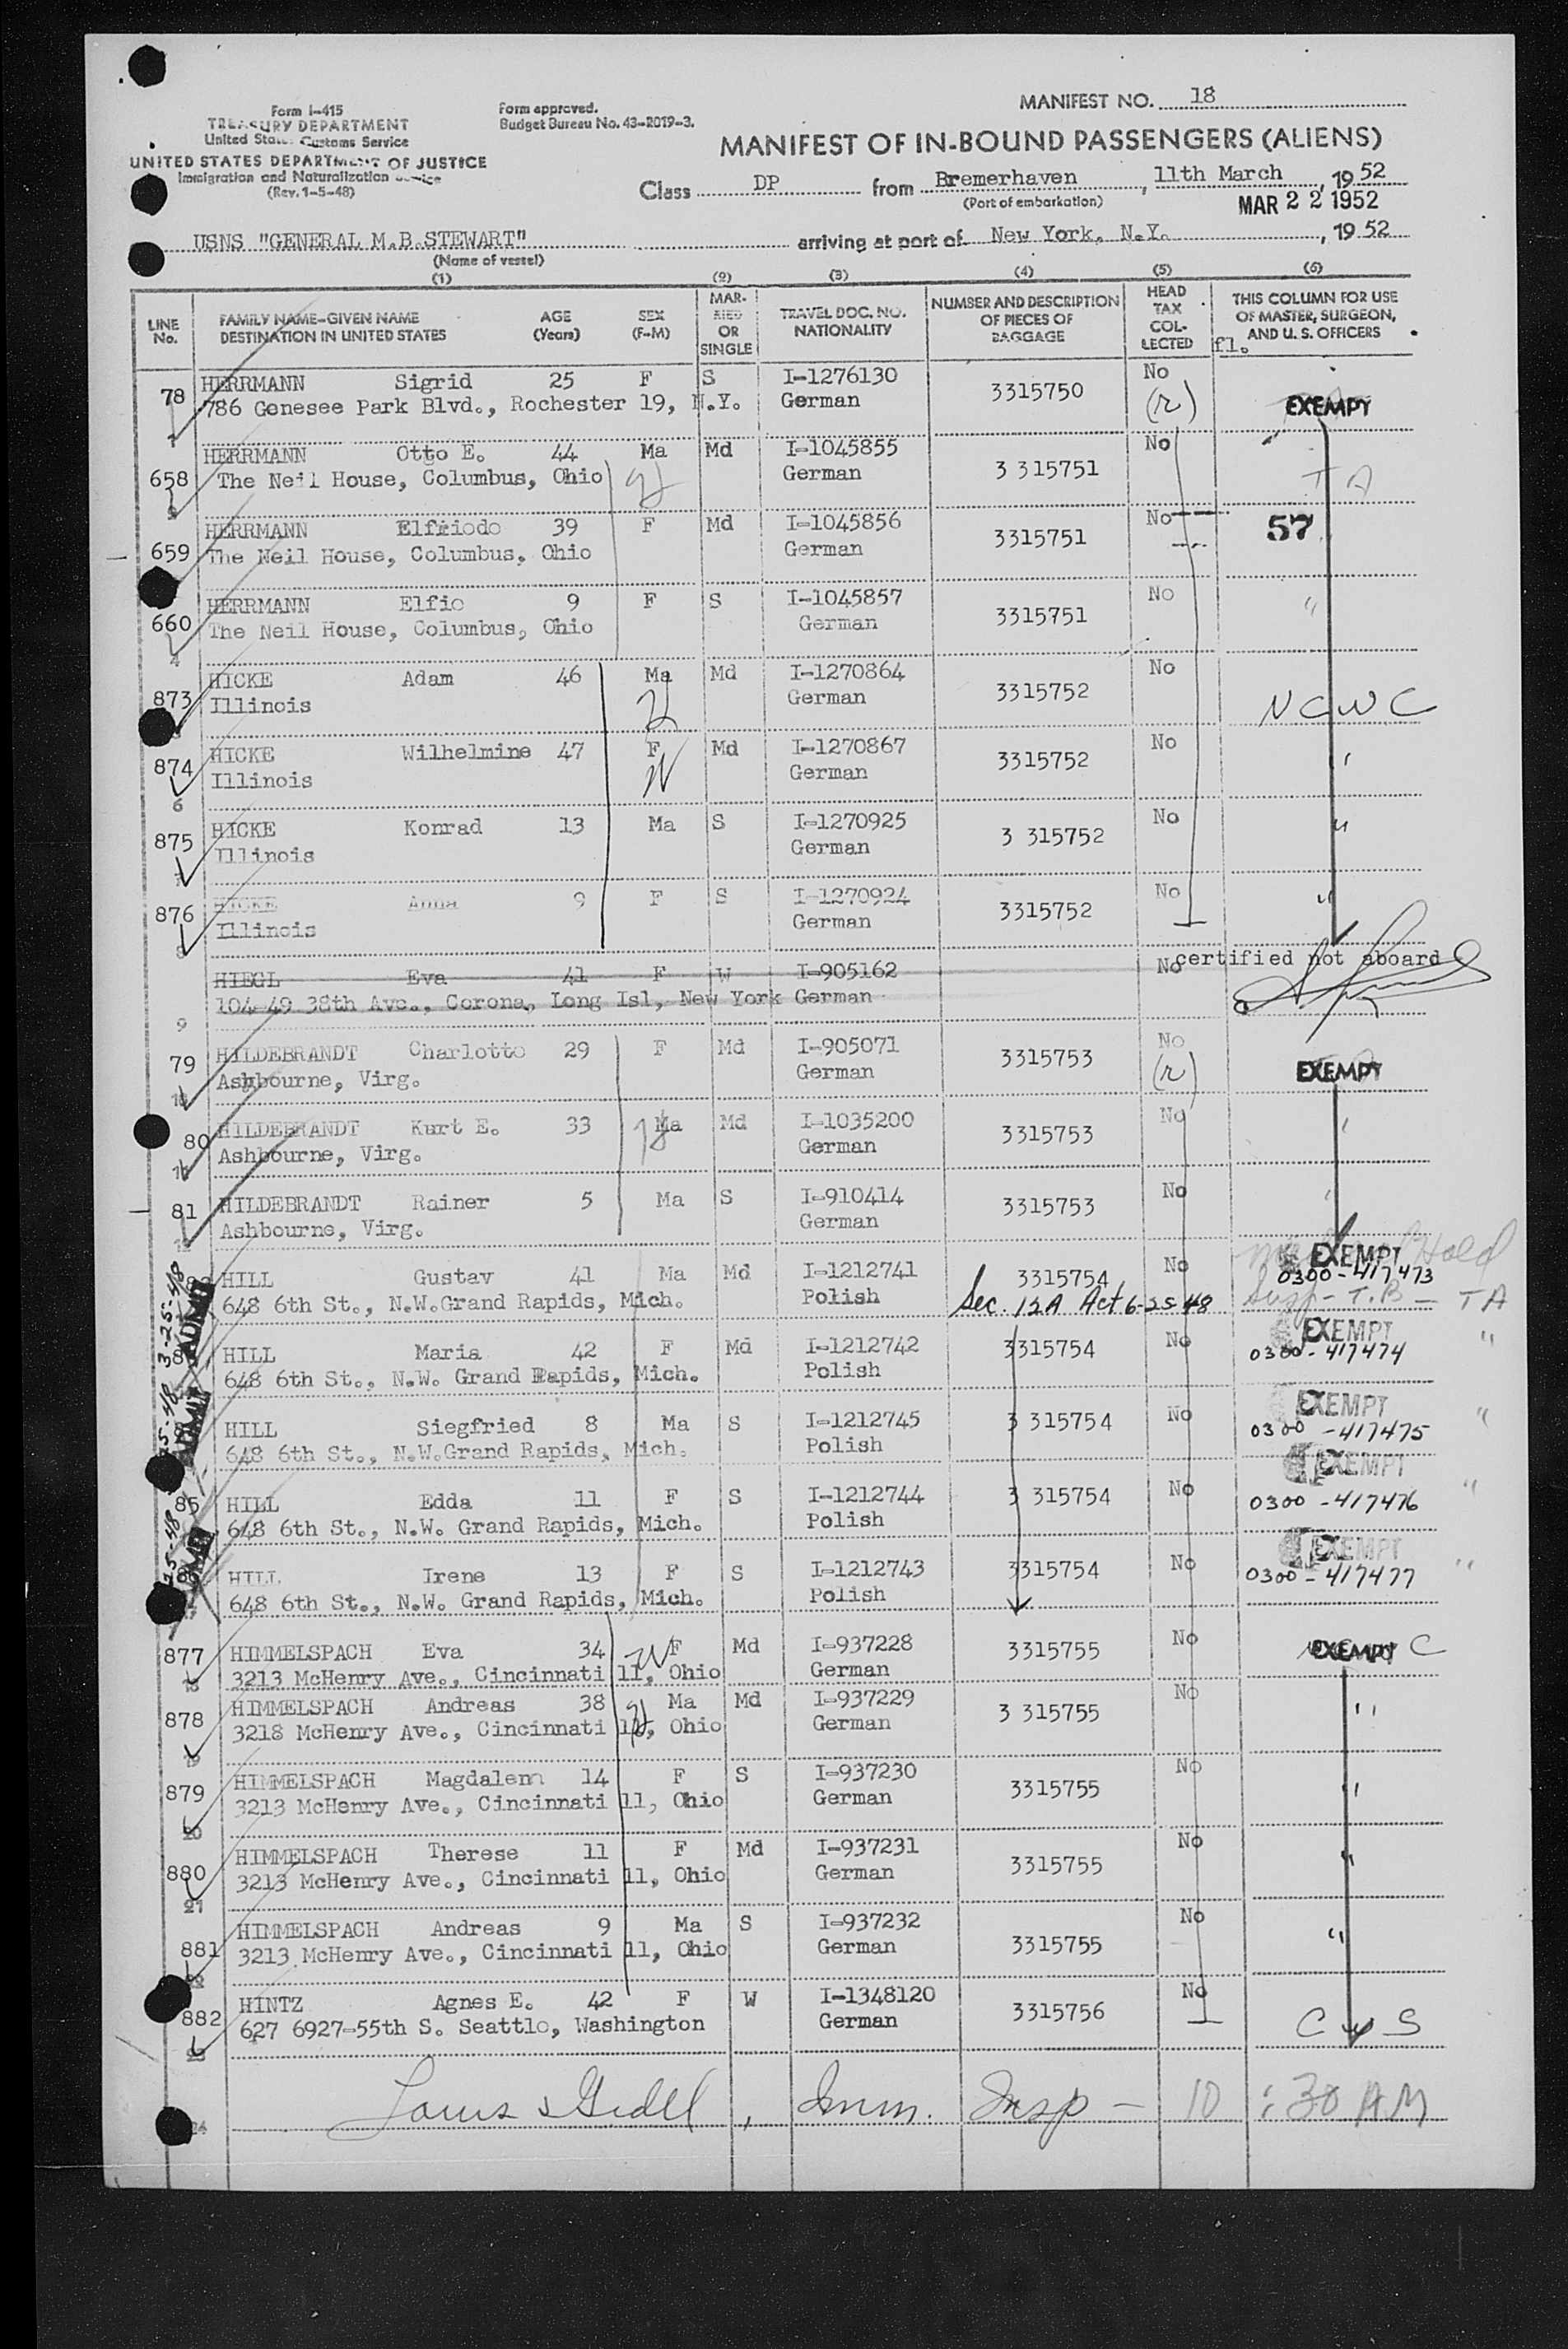 Form I-415
TREASURY DEPARTMENT
United States Customs Service
UNITED STATES DEPARTMENT OF JUSTICE
Immigration and Naturalization Service
(Rev. 1-5-48)
Form approved.
Budget Bureau No. 43-R019-3.
MANIFEST NO. 18
MANIFEST OF IN-BOUND PASSENGERS (ALIENS)
Class DP from Bremerhaven, 11th March, 1952
(Port of embarkation)
MAR 22 1952
USNS "GENERAL M.B.STEWART" arriving at port of New York, N.Y., 1952
(Name of vessel)
(1) (2) (3) (4) (5) (6)
LINE No. FAMILY NAME-GIVEN NAME DESTINATION IN UNITED STATES AGE (Years) SEX (F-M) MARRIED OR SINGLE TRAVEL DOC. NO. NATIONALITY NUMBER AND DESCRIPTION OF PIECES OF BAGGAGE HEAD TAX COLLECTED THIS COLUMN FOR USE OF MASTER, SURGEON, AND U. S. OFFICERS
fl.
78 HERRMANN Sigrid 25 F S I-1276130 3315750 No
786 Genesee Park Blvd., Rochester 19, N.Y. German (r) EXEMPT
658 HERRMANN Otto E. 44 Ma Md I-1045855 3 315751 No
The Neil House, Columbus, Ohio German T A
659 HERRMANN Elfriede 39 F Md I-1045856 3315751 No 57
The Neil House, Columbus, Ohio German
660 HERRMANN Elfie 9 F S I-1045857 3315751 No "
The Neil House, Columbus, Ohio German
4
873 HICKE Adam 46 Ma Md I-1270864 3315752 No
Illinois German N C W C
874 HICKE Wilhelmine 47 F Md I-1270867 3315752 No
Illinois German "
6
875 HICKE Konrad 13 Ma S I-1270925 3 315752 No "
Illinois German
7
876 HICKE Anna 9 F S I-1270924 3315752 No "
Illinois German
8
HIEGL Eva 41 F W I-905162 No certified not aboard
104-49 38th Ave., Corona, Long Isl, New York German
9
79 HILDEBRANDT Charlotte 29 F Md I-905071 3315753 No
Ashbourne, Virg. German (r) EXEMPT
10
80 HILDEBRANDT Kurt E. 33 Ma Md I-1035200 3315753 No
Ashbourne, Virg. German
11
81 HILDEBRANDT Rainer 5 Ma S I-910414 3315753 No
Ashbourne, Virg. German
12
82 HILL Gustav 41 Ma Md I-1212741 3315754 No EXEMPT Hold
0300-417473
648 6th St., N.W.Grand Rapids, Mich. Polish Sec. 12A Act 6-25-48 Susp-T.B - TA
ADMIT
HILL Maria 42 F Md I-1212742 3315754 No EXEMPT "
648 6th St., N.W. Grand Rapids, Mich. Polish 0300-417474
ADMIT
HILL Siegfried 8 Ma S I-1212745 3 315754 No EXEMPT "
648 6th St., N.W.Grand Rapids, Mich. Polish 0300-417475
85 HILL Edda 11 F S I-1212744 3 315754 No EXEMPT "
648 6th St., N.W. Grand Rapids, Mich. Polish 0300-417476
86 HILL Irene 13 F S I-1212743 3315754 No EXEMPT "
648 6th St., N.W. Grand Rapids, Mich. Polish 0300-417477
877 HIMMELSPACH Eva 34 F Md I-937228 3315755 No EXEMPT C
3213 McHenry Ave., Cincinnati 11, Ohio German
18
878 HIMMELSPACH Andreas 38 Ma Md I-937229 3 315755 No "
3218 McHenry Ave., Cincinnati 11, Ohio German
19
879 HIMMELSPACH Magdalena 14 F S I-937230 3315755 No "
3213 McHenry Ave., Cincinnati 11, Ohio German
20
880 HIMMELSPACH Therese 11 F Md I-937231 3315755 No "
3213 McHenry Ave., Cincinnati 11, Ohio German
21
881 HIMMELSPACH Andreas 9 Ma S I-937232 3315755 No "
3213 McHenry Ave., Cincinnati 11, Ohio German
22
882 HINTZ Agnes E. 42 F W I-1348120 3315756 No
627 6927-55th S. Seattle, Washington German C W S
23
24 Imm. Insp - 10:30 AM